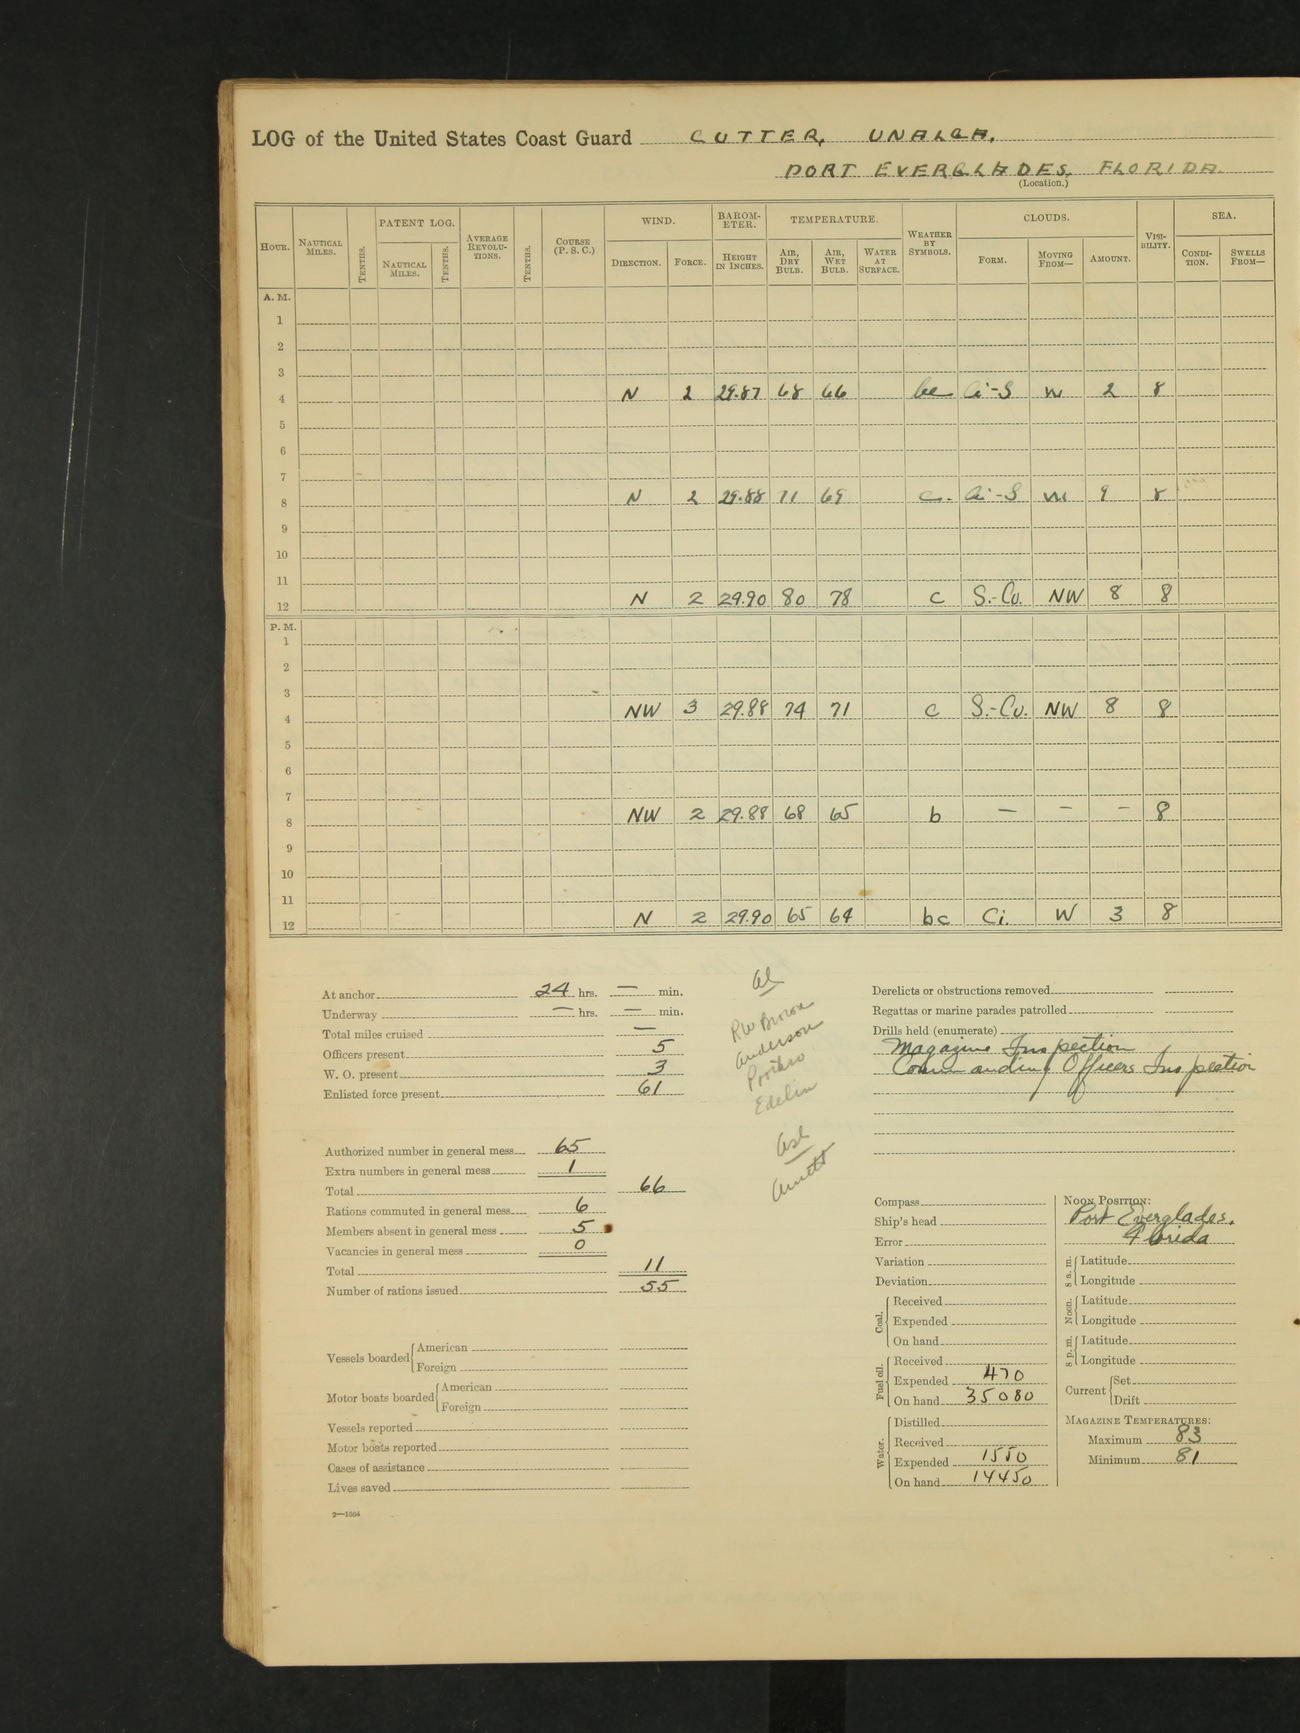 LOG of the United States Coast Guard CUTTER, UNALGA.
PORT EVERGLADES, FLORIDA.
(Location.)
HOUR. NAUTICAL MILES. TENTHS. PATENT LOG. NAUTICAL MILES. TENTHS. AVERAGE REVOLUTIONS. TENTHS. COURSE (P. S. C.) WIND. DIRECTION. FORCE. BAROMETER. HEIGHT IN INCHES. TEMPERATURE. AIR, DRY BULB. AIR, WET BULB. WATER AT SURFACE. WEATHER BY SYMBOLS. CLOUDS. FORM. MOVING FROM— AMOUNT. VISIBILITY. SEA. CONDITION. SWELLS FROM—
A. M.
1
2
3
4 N 2 29.87 68 66 bc Ci-S W 2 8
5
6
7
8 N 2 29.88 71 69 c. Ci-S W 9 8
9
10
11
12 N 2 29.90 80 78 c S.-Cu. NW 8 8
P. M.
1
2
3
4 NW 3 29.88 74 71 c S.-Cu. NW 8 8
5
6
7
8 NW 2 29.88 68 65 b — — — 8
9
10
11
12 N 2 29.90 65 64 bc Ci. W 3 8
At anchor 24 hrs. — min.
Underway — hrs. — min.
Total miles cruised —
Officers present 5
W. O. present 3
Enlisted force present 61
Authorized number in general mess 65
Extra numbers in general mess 1
Total 66
Rations commuted in general mess 6
Members absent in general mess 5
Vacancies in general mess 0
Total 11
Number of rations issued 55
Vessels boarded American
Foreign
Motor boats boarded American
Foreign
Vessels reported
Motor boats reported
Cases of assistance
Lives saved
2—1564
RW Brown
Anderson
Edelin
Derelicts or obstructions removed
Regattas or marine parades patrolled
Drills held (enumerate)
Magazine Inspection
Commanding Officers Inspection
Compass
Ship's head
Error
Variation
Deviation
Coal. Received
Expended
On hand
Fuel oil. Received
Expended 470
On hand 35080
Water. Distilled
Received
Expended 1550
On hand 14450
NOON POSITION:
Port Everglades,
Florida
8 a. m. Latitude
Longitude
Noon. Latitude
Longitude
8 p. m. Latitude
Longitude
Current Set
Drift
MAGAZINE TEMPERATURES:
Maximum 83
Minimum 81